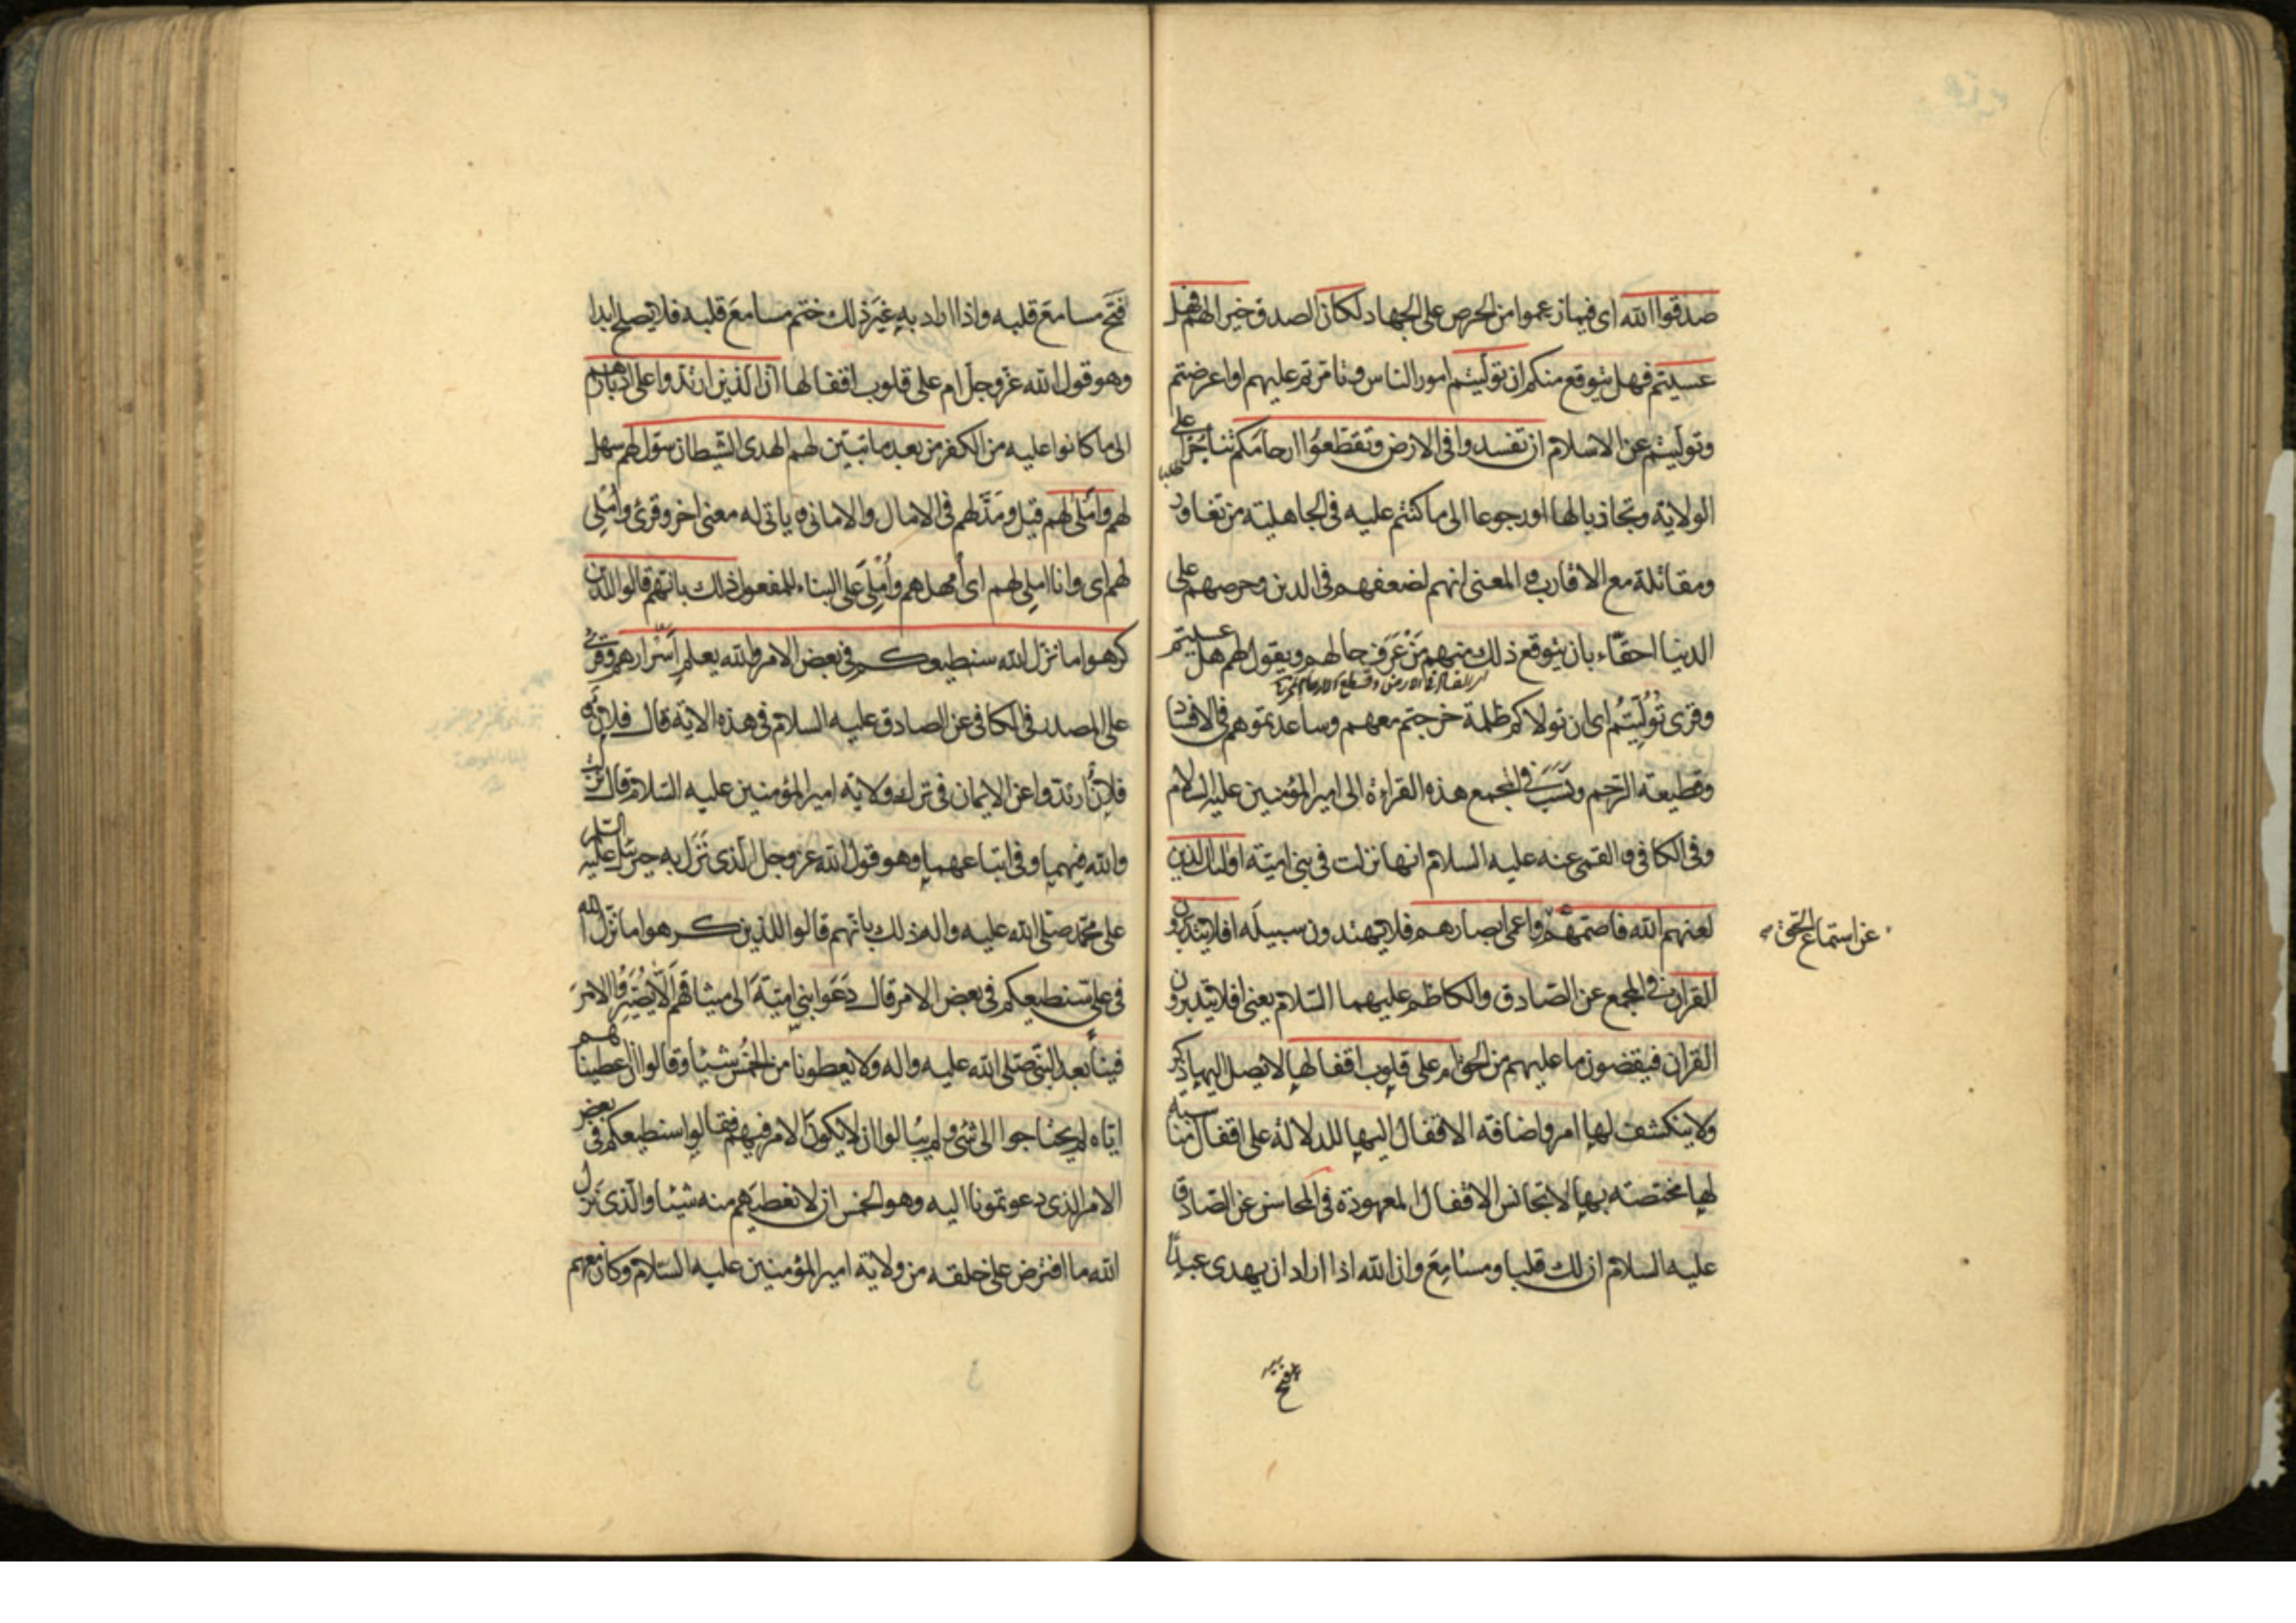 صدقوا الله اى فيما زعموا من الحرص على الجهاد لكان الصدق خيرا لهم فهل
عسيتم فهل يتوقع منكم ان توليتم امور الناس وتامرتم عليهم او اعرضتم
وتوليتم عن الاسلام ان تفسدوا فى الارض وتقطعوا ارحامكم تناجزا على
الولاية وتجاذبا لها او رجوعا الى ما كنتم عليه فى الجاهلية من تغاور
ومقاتلة مع الاقارب والمعنى انهم لضعفهم فى الدين وحرصهم على
الدنيا احقاء بان يتوقع ذلك منهم مَنْ عَرَفَ حالهم ويقول لهم هل عسيتم
وقرئ تُوُلِّيتُم اى ان تولاكم ظلمة خرجتم معهم وساعدتموهم فى الافساد
وقطيعة الرّحم ونَسَبَ فى المجمع هذه القراءة الى امير المؤمنين عليه السلام
وفى الكافى والقمى عنه عليه السلام انها نزلت فى بنى اميّة اولئك الذين
لعنهم الله فاصمّهم واعمى ابصارهم فلا يهتدون سبيلَه افلا يتدبرون
عن استماع الحقّ
القران فى المجمع عن الصّادق والكاظم عليهما السّلام يعنى افلا يتدبرون
القران فيقضون ما عليهم من الحق ام على قلوب اقفالها لا يصل اليها ذكر
ولا ينكشف لها امر واضافة الاقفال اليها للدلالة على اقفال مناسبة
لها مختصّة بها لا تجانس الاقفال المعهودة فى المحاسن عن الصّادق
عليه السلام ان لك قلبا ومسامِعَ وان الله اذا اراد ان يهدى عبدًا
فتح
فَتَحَ مسامعَ قلبه واذا اراد بهِ غيَرَ ذلك ختم مسامعَ قلبه فلا يصلح ابدا
وهو قول الله عزّ وجلّ ام على قلوب اقفالها انّ الذين ارتدّوا على ادبارهم
الى ما كانوا عليه من الكفر من بعد ما تبيّن لهم الهدى الشّيطان سوّل لهم سهل
لهم واَملى لهم قيل ومَدَّ لهم فى الامال والامانى ياتى له معنى اخر وقرئ واُمْلِى
لهم اى وانا املِى لهم اى اُمهلهم واُمْلِىَ على البناء للمفعول ذلك بانّهم قالوا للذين
كرهوا ما نزّل الله سنطيعكم فى بعض الامر والله يعلم اِسْرارهم وقرئ
على المصدر فى الكافى عن الصادق عليه السلام فى هذه الاية قال فلان
فلانٌ ارتدّوا عن الايمان فى ترك ولاية امير المؤمنين عليه السّلام قال نزلت
والله فيهما وفى اتباعهما وهو قول الله عزّ وجلّ الّذى نَزَلَ به جبرئيل عليه السلم
على محمّد صلّى الله عليه واله ذلك بانّهم قالوا للذين كرهوا ما نزّل الله
فى علىّ سنطيعكم فى بعض الامر قال دَعَوا بنى اميّةَ الى ميثاقهم اَلّا يُصَيِّرُوا الامرَ
فينا بعد النّبىّ صلّى الله عليه واله ولا يعطونا من الخُمُس شيئا وقالوا ان اعطيناهم
ايّاه لم يحتاجوا الى شئ ولم يبالوا ان لا يكون الامر فيهم فقالوا سنطيعكم فى بعض
الامر الذى دعوتمونا اليه وهو الخمس ان لا نعطيَهم منه شيئا والّذى نَزّل
الله ما افترض على خلقه من ولاية امير المؤمنين عليه السّلام وكان معهم